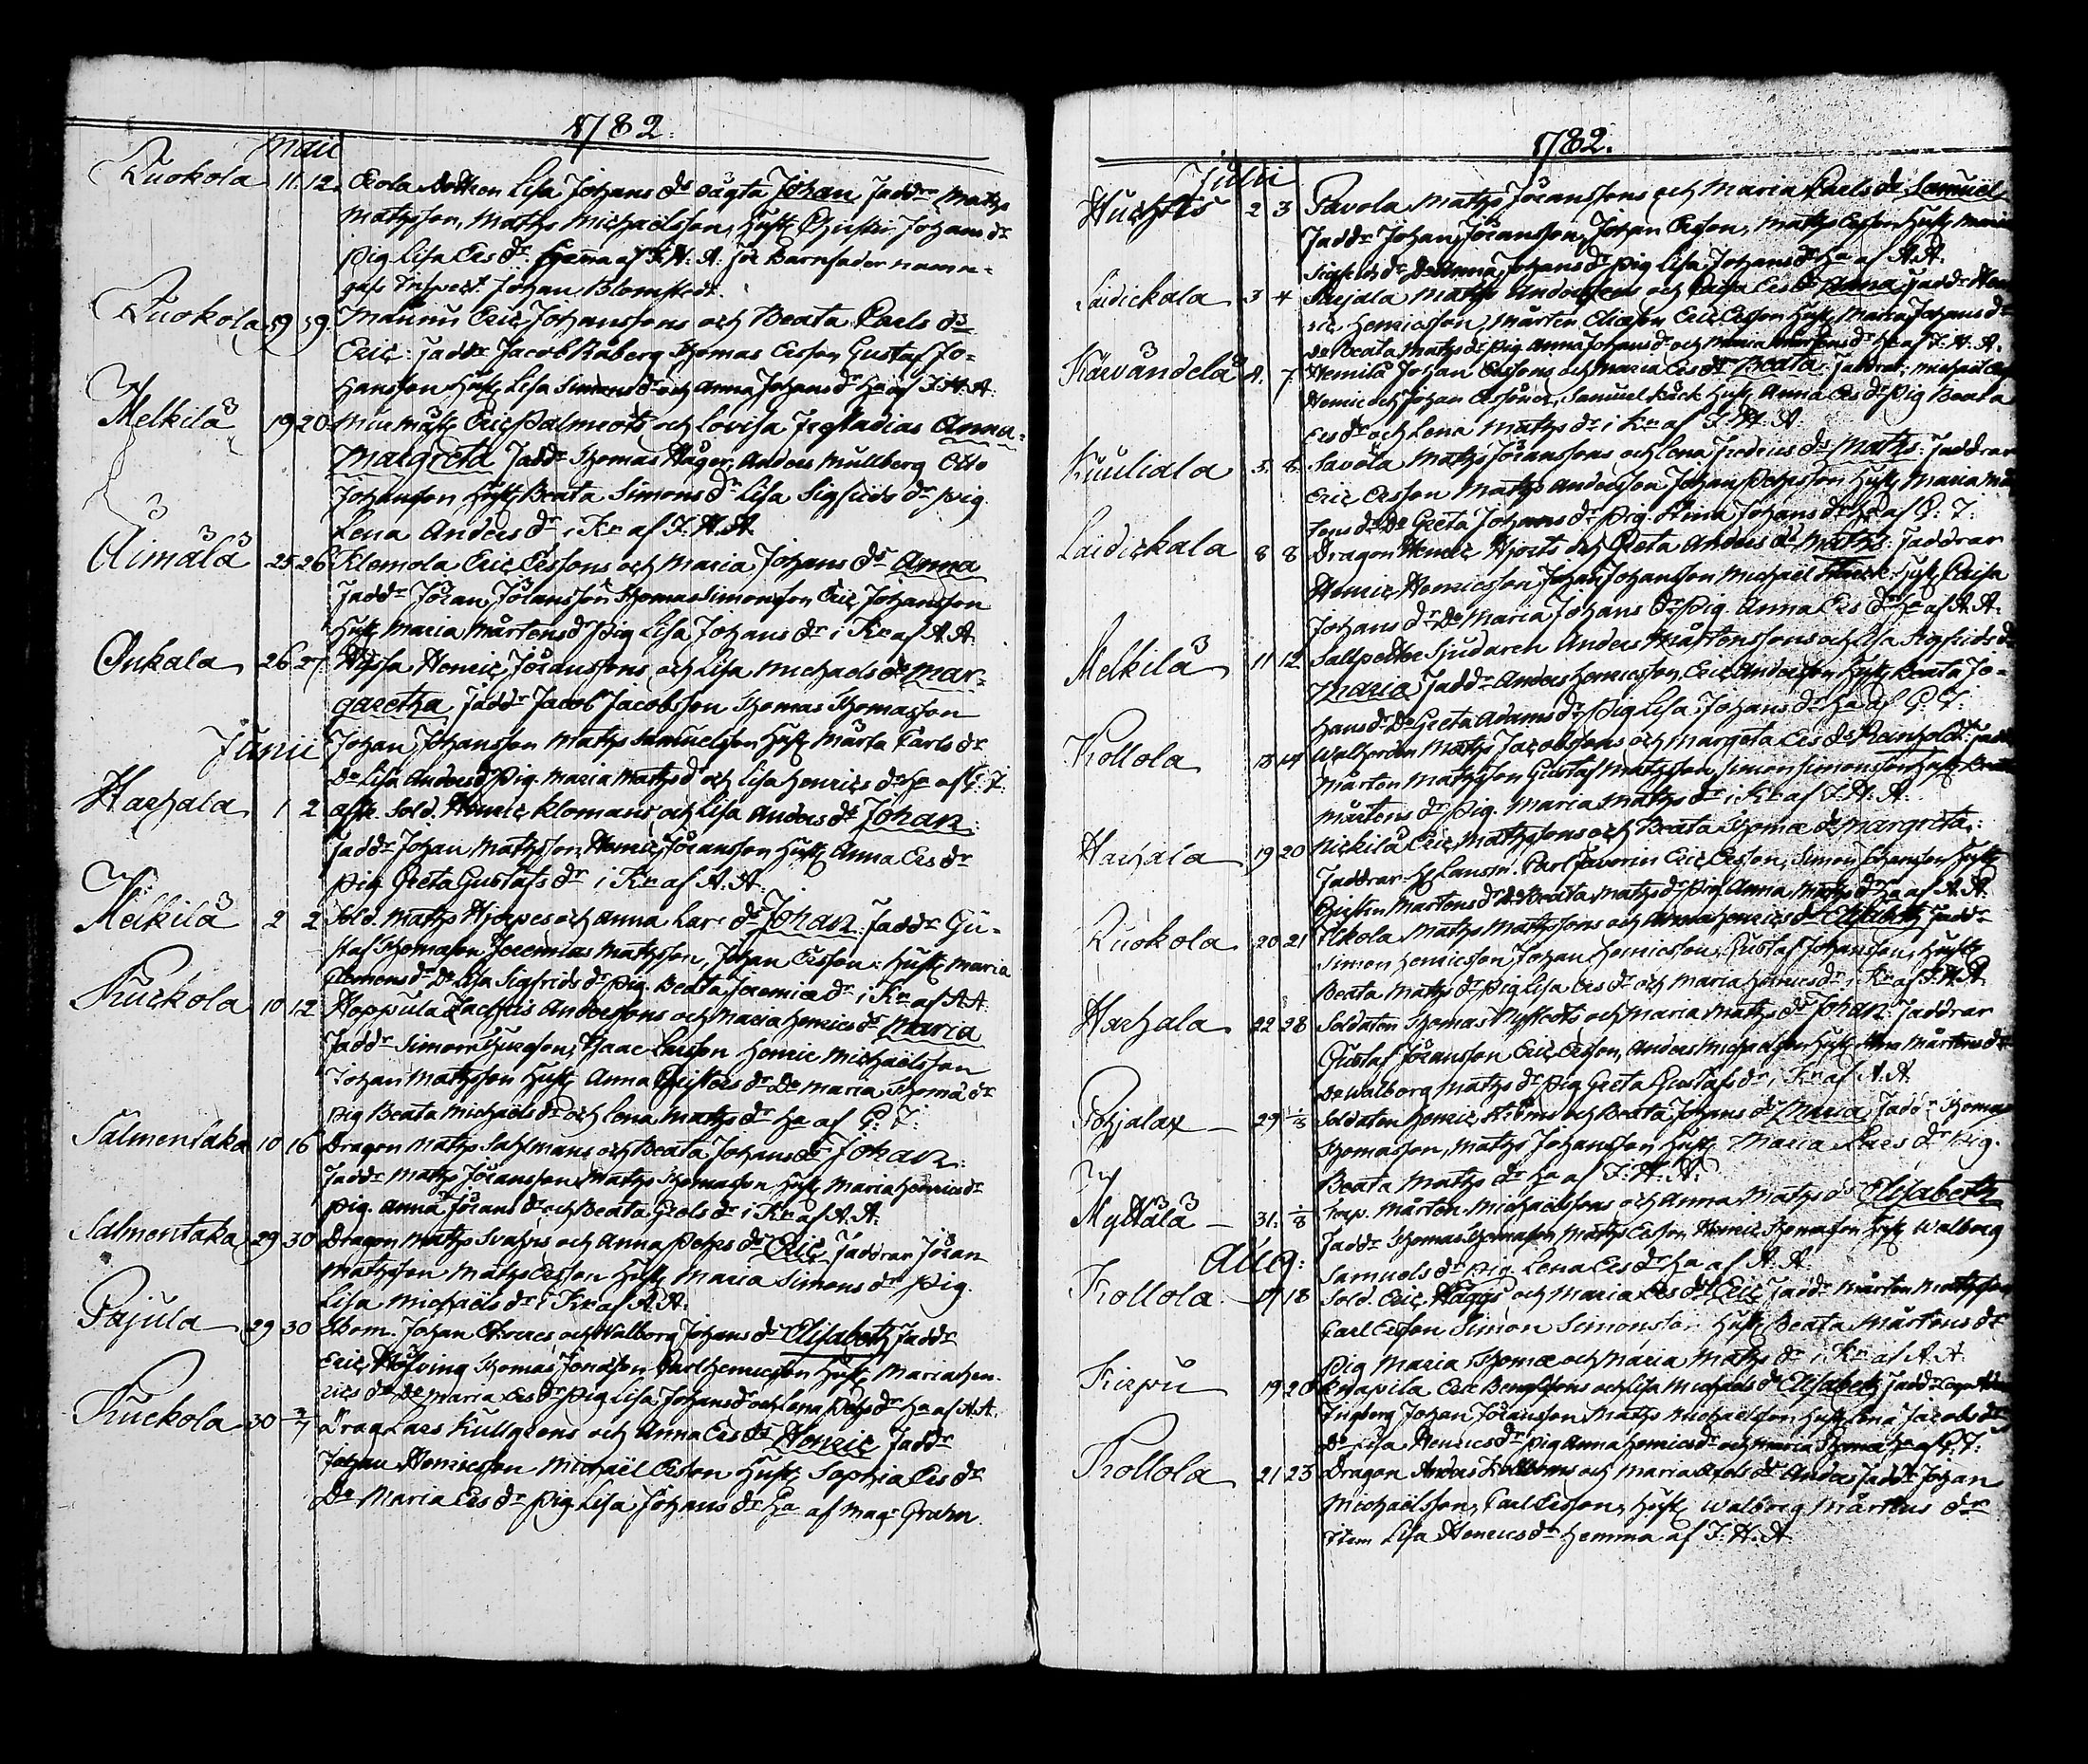 1782.
Maii
Ruokola 11. 12. Lisa Johans dr oägta Johan Fadd:r Mathz
Mathzsson, Mathz Michaelsson, Hustr Christin Johans dr
Pig Lisa Ers dr hemma af F. H. A. för Barnfader namn=
gafs Johan Blomstedt.
Ruokola 19 19. Mauru Eric Johanssons och Beata Carls dr
Eric: Faddr Jacob Råberg Thomas Ersson Gustaf Jo=
hansson Hustr Lisa Simons dr och Anna Johans dr Ha af F. H. A:
Melkilä 19 20 Murmäst Eric Palmroths och Lovisa Anna=
Margreta Fadd:r Thomas Häger, Anders Mullberg Otto
Johansson Hustr Beata Simons dr Lisa Sigfrids dr pig
Lena Anders dr i Kn af F. H. A.
Äimälä 25 26 Klemola Eric Erssons och Maria Johans dr Anna
Fadd:r Jöran Jöransson Thomas Simonsson Eric Johansson
Hustr Maria Mårtens dr Pig Lisa Johans dr i Kn af A. A.
Onkala 26 27. Henric Jöranssons och Lisa Michaels dr Mar=
garetha Fadd:r Jacob Jacobsson Thomas Thomasson
Junii Johan Johansson Mathz Samuelsson Hustr Märta Carls dr
Do Lisa Anders dr Pig. Maria Mathz dr och Lisa Henrics dr Ha af G: T:
Harhala 1 2 afsk. Sold. Henric Klomans och Lisa Anders dr Johan:
Fadd:r Johan Mathzsson, Henric Jöransson Hustr Anna Ers dr
Pig Greta Gustafs dr i Kn af A. A.
Melkilä 2 2 Sold. Mathz Hjerpes och Anna Lars dr Johan. Fadd:r Gu=
staf Thomasson Jeremias Mathzsson, Johan Ersson: Hustr Maria
Clemens dr Do Lisa Sigfrids dr pig. Beata Jeremiæ dr i Kn af A A.
Kuckola 10 12 Hoppula Zachris Anderssons och Maria Henrics dr Maria
Fadd:r Simon Isaac Larsson Henric Michaelsson
Johan Mathzsson Hustr Anna Christers dr Do Maria Thomæ dr
pig Beata Michaels dr och Lena Mathz dr Ha af G: T:
Salmentaka 10 16 Dragon Mathz Sahlmans och Beata Johans dr Johan:
Fadd:r Mathz Jöransson Mathz Thomasson Hustr Maria Henrics dr
Pig. Anna Jörans dr och Beata dr i Kn af A. A.
Salmentaka 29 30 Dragon Mathz Svahns och Anna Pehrs dr Eric Faddrar Jöran
Mathzsson Mathz Ersson Hustr Maria Simons dr pig.
Lisa Michaels dr i Kn af A. A.
Pajula 29 30 Johan och Walborg Johans dr Elisabeth Fadd:r
Eric Thomas Carl Henricsson Hustr Maria Hen=
rics dr Do Maria Ers dr Pig Lisa Johans dr och Lena Pehrs dr Ha af A. A.
Kuckola 30 2/7 Drag Lars Kullgrens och Anna Ers dr Henric Fadd:r
Johan Henricsson Michael Ersson Hustr Sophia Ers dr
Do Maria Ers dr pig Lisa Johans dr Ha af Mag:r Grahn.
1782.
Julii
Huchtis 2 3 Pavola Mathz Jöranssons och Maria Carls dr Samuel
Fadd:r Johan Jöransson, Johan Ersson, Mathz Ersson Hustr Maria
Sigfrids dr Do Anna Johans dr Pig Lisa Johans dr Ha af A. A.
Laidickala 3 4 Mathz Anderssons och Caisa Ers dr Anna Fadd:r Hen=
ric Henricsson, Mårten Eric Ersson Hustr Maria Johans dr
Do Beata Mathz dr Pig Anna Johans dr och Maria Mårtens dr Ha af F. H. A.
7. Hemilä Johan Erssons och Maria Ers dr Beata: Faddrar:
Henric och Johan Erssöner, Samuel Hustr Anna Ers dr Pig Beata
Ers dr och Lena Mathz dr i Kn af F. H. A
Kuuliala 5. 8. Savola Mathz Jöranssons och Lena Fredrics dr Mathz: Faddrar
Eric Ersson Mathz Andersson Johan Pehrsson Hustr Maria
tens dr Do Greta Johans dr Pig. Stina Johans dr Ha af G: T:
Laidickala 8 8 Dragon Henric Hjorts och Greta Anders dr Mathz: Faddrar
Henric Henricsson Johan Johansson Michael Hustr Caisa
Johans dr Do Maria Johans dr Pig. Anna Ers dr Ha af A. A.
Melkilä 11 12 Sallpetter Sjudaren Anders Mårtenssons och Lisa Sigfrids dr
Maria Fadd:r Anders Henricsson, Eric Andersson Hustr Beata Jo=
hans dr Do Greta Adams dr Pig Lisa Johans dr Ha af G: T:
Kollola 13 14 Mathz Jacobssons och Margeta Ers dr Reinholdt:
Mårten Mathzsson Gustaf Mathzsson, Simon Simonsson Hustr
Mårtens dr Pig. Maria Mathz dr i Kn af F. H. A:
Harhala 19 20 Nickilä Eric Mathzssons och Beata Thomæ dr Margreta:
Faddrar Länsm. Carl Favorin Eric Ersson, Simon Johansson Hustr
Christin Mårtens dr Do Beata Mathz dr Pig Anna Mathz dr Ha af A. A.
Ruokola 20 21 Ilkola Mathz Mathzssons och Anna Henrics dr Elisabeth Fadd:r
Simon Henricsson Johan Henricsson, Gustaf Johansson, Hustr
Beata Mathz dr Pig Lisa Ers dr och Maria Henrics dr i Kn af F. H. A.
Harhala 22 28 Soldaten Thomas och Maria Mathz dr Johan: Faddrar
Gustaf Jöransson Eric Ersson, Anders Michaelsson Hustr Mårtens dr
Do Walborg Mathz dr pig Greta Gustafs dr i Kn af A. A
29 1/8 Soldaten Henric och Beata Johans dr Maria Fadd:r Thomas
Thomasson, Mathz Johansson Hustr Maria Lars dr Pig.
Beata Mathz dr Ha af F. H. A:
Myttälä 31. 1/8 Torp. Mårten Michaelssons och Anna Mathz dr Elisabeth
Fadd:r Thomas Thomasson Mathz Ersson Henric Thomasson Hustr Walborg
Aug: Samuels dr pig Lena Ers dr Ha af A. A
Kollola 17 18 Sold. Eric Häggs och Maria Ers dr Eric Fadd:r Mårten Mathzsson
Carl Ersson Simon Simonsson Hustr Beata Mårtens dr
Pig Maria Thomæ och Maria Mathz dr i Kn af A. A.
Kirpu 19 20 Knapila Eric Bengtssons och Lisa Michaels dr Elisabeth Fadd:r
Ingberg Johan Jöransson Mathz Michaelsson Hustr Lena Jacobs dr
Do Lisa Henrics dr Pig Anna Henrics dr och Maria Thomæ Ha af G. T:
Kollola 21 23 Dragon Anders och Maria dr Anders Fadd:r Johan
Michaelsson, Carl Ersson, Hustr Walborg Mårtens dr
item Lisa Henrics dr Hemma af F. H. A